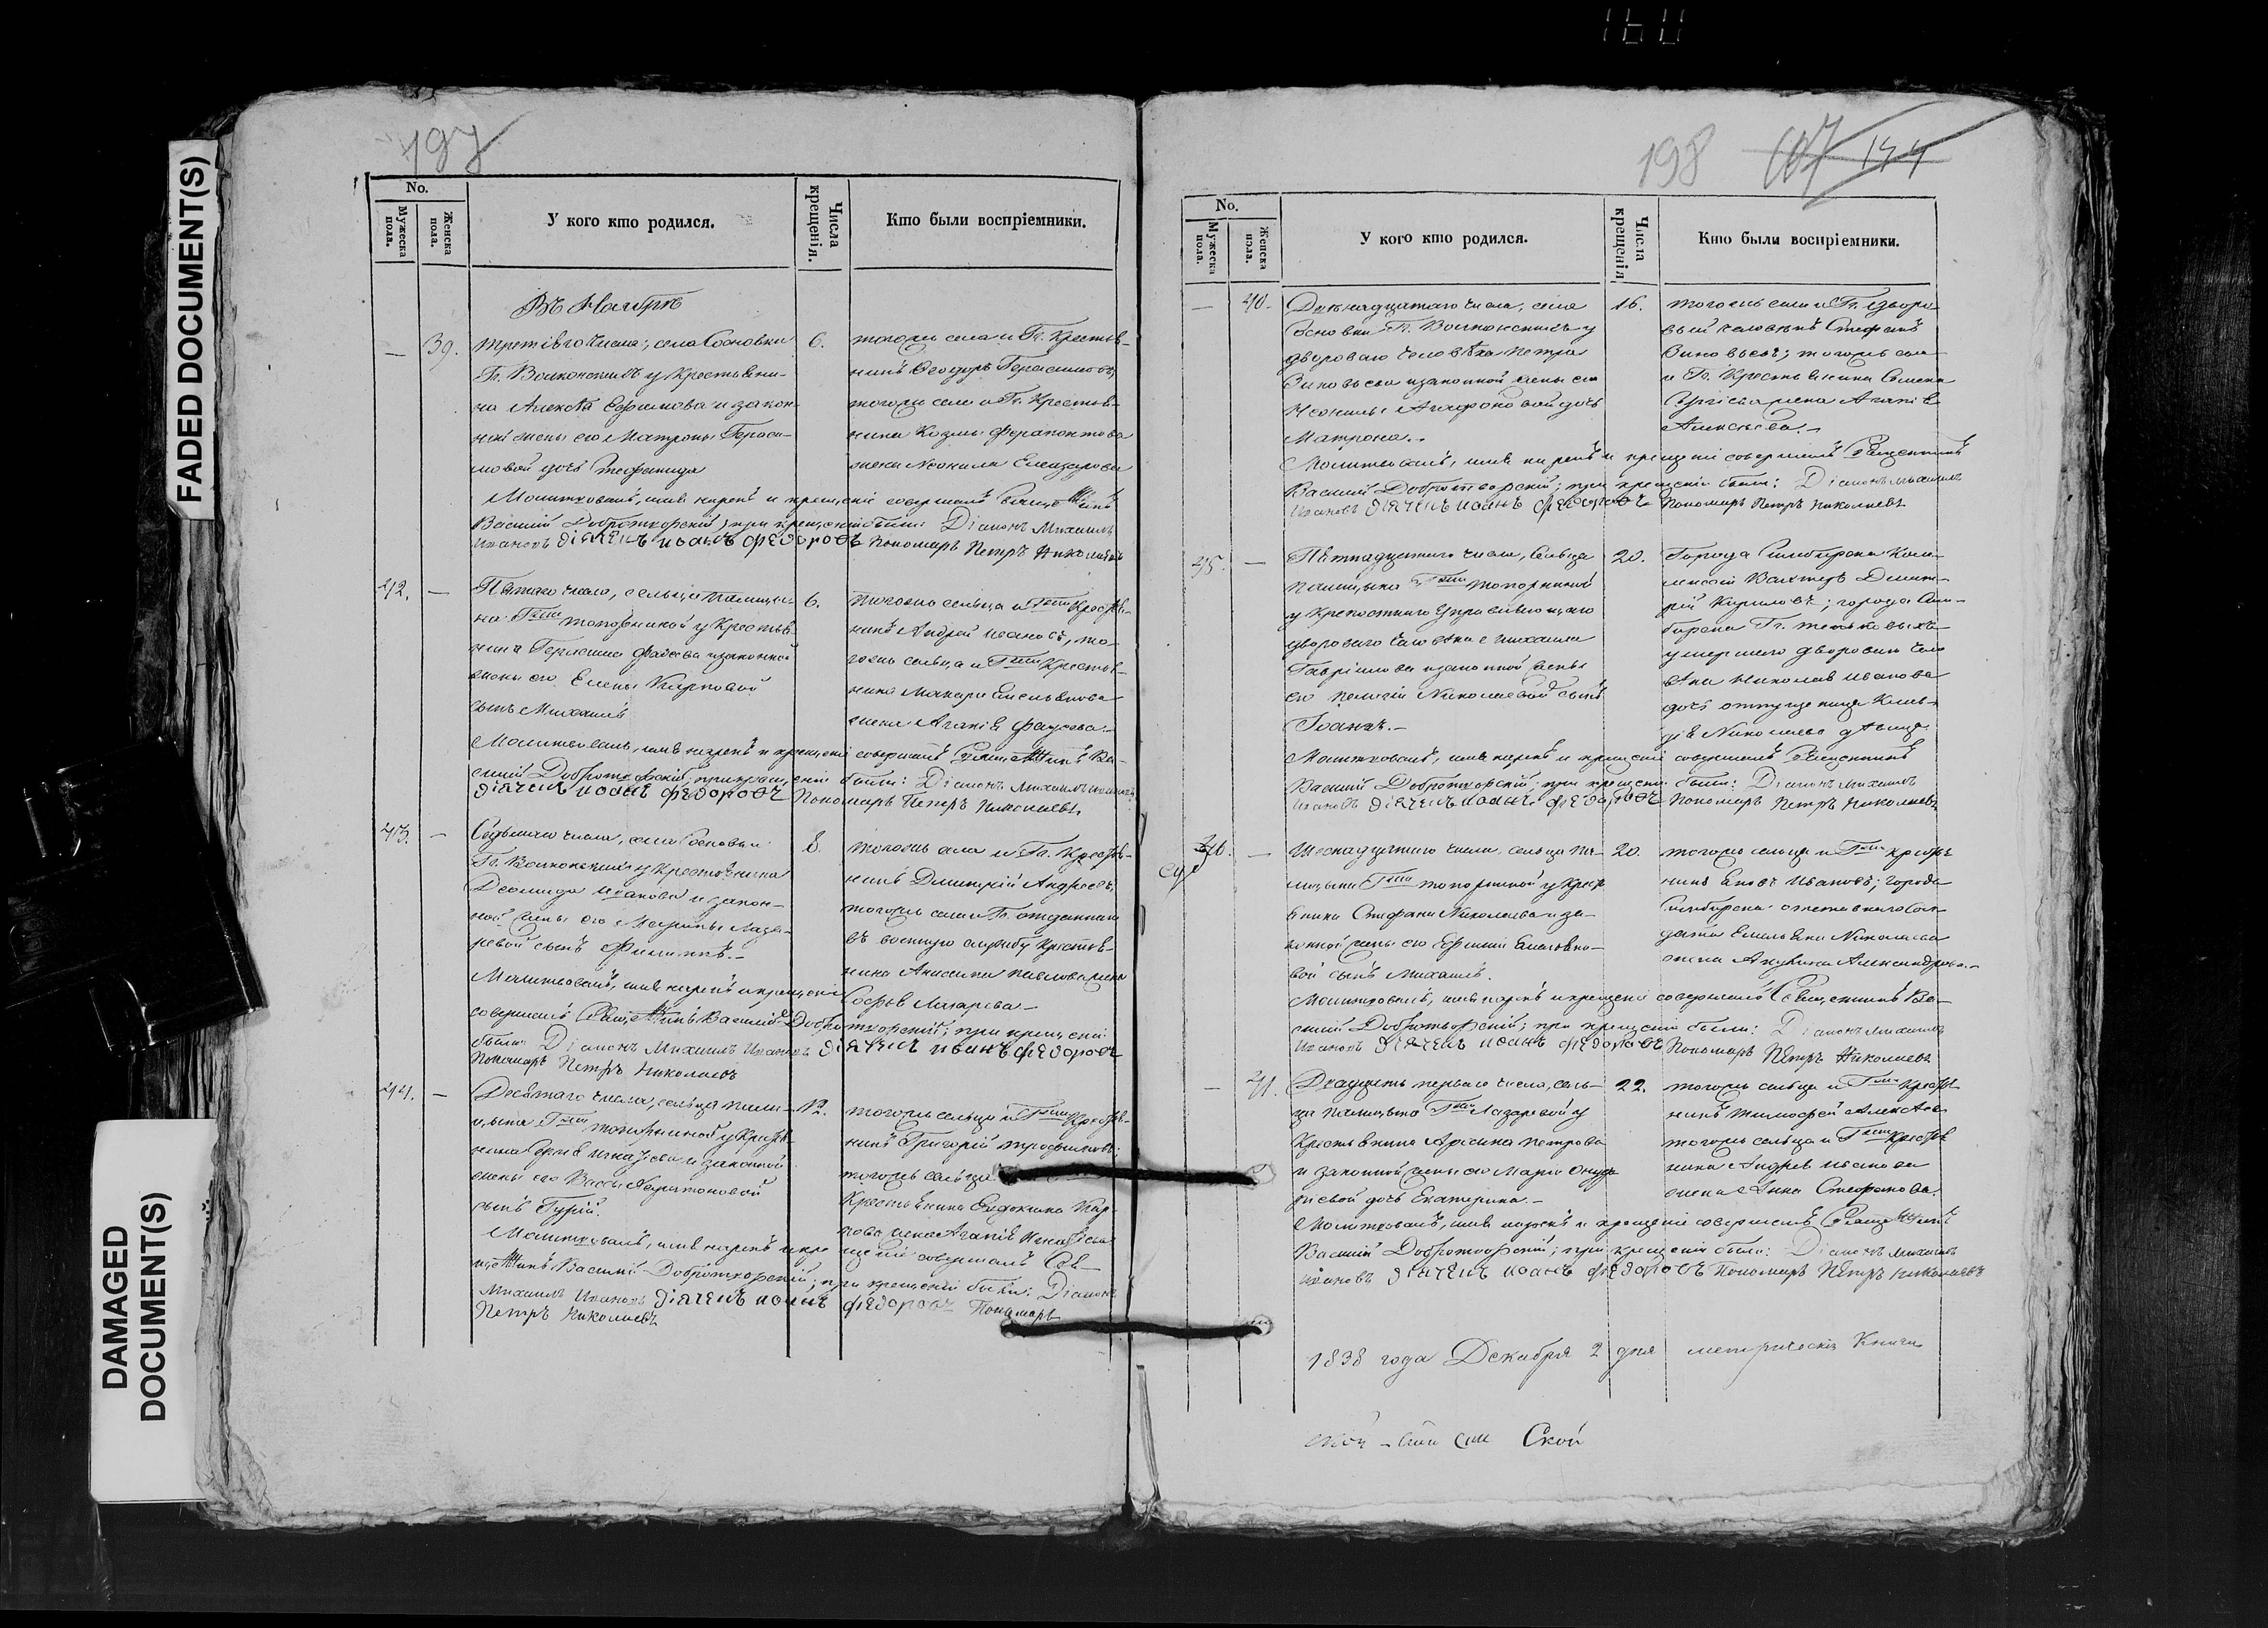 160
FADED DOCUMENT(S)
DAMAGED
DOCUMENT(S)
197
No.
Мужеска пола.
Женска пола.
У кого кто родился.
Числа крещенія.
Кто были воспріемники.
Въ Ноябрѣ
— 39. третіяго числа, села Сосновки 6.
Гг. Волконскихъ у крестьяни-
на Алексѣя Ефимова и закон-
ной жены его Матроны Гераси-
мовой дочь Стефанида
тогожъ села и Гг. крестья-
нинъ Ѳеодоръ Герасимовъ,
тогожъ села и Гг. крестья-
нина Козмы Ферапонтова
жена Неонила Елеазарова
Молитвовалъ, имя нарекъ и крещеніе совершалъ Священникъ
Василій Добротворскій; при крещеніи были: Діаконъ Михаилъ
Ивановъ діячекъ иоанъ федоровъ Пономарь Петръ Николаевъ
42. — Пятаго числа, сельца Палицы- 6.
на Гжи Топорниной у крестья-
нина Герасима Фадѣева и законной
жены его Елены Карповой
сынъ Михаилъ
тогожъ сельца и Гжи крестья-
нинъ Андрей Ивановъ, то-
гожъ сельца и Гжи крестья-
нина Макара Емельянова
жена Агапія
Молитвовалъ, имя нарекъ и крещеніе совершалъ Священникъ Ва-
силій Добротворскій; при крещеніи были: Діаконъ Михаилъ Ивановъ
діячекъ иоанъ федоровъ Пономарь Петръ Николаевъ
43. — Седьмаго числа, села Сосновки 8.
Гг. Волконскихъ у крестьянина
Деомида Иванова и закон-
ной жены его Марины Лаза-
ревой сынъ Филиппъ.-
тогожъ села и Гг. крестья-
нинъ Димитрій Андреевъ,
тогожъ села и Гг. отданнаго
въ военную службу крестья-
нина Анисима Павлова жена
Софья Лазарева-
Молитвовалъ, имя нарекъ и крещеніе
совершалъ Священникъ Василій Добротворскій; при крещеніи
были: Діаконъ Михаилъ Ивановъ діячекъ иоанъ федоровъ
Пономарь Петръ Николаевъ
44. — Десятаго числа, сельца Пали- 12.
цына Гжи Топорниной у крестья-
нина Сергія Игнатіева и законной
жены его Вассы Харитоновой
сынъ Гурій.
тогожъ сельца и Гжи крестья-
нинъ Григорій Трофимовъ;
тогожъ сельца
крестьянина Евдокима Кар-
пова жена Агапія Игнатіева
Молитвовалъ, имя нарекъ и крещеніе совершалъ Свя-
щенникъ Василій Добротворскій; при крещеніи были: Діаконъ
Михаилъ Ивановъ діячекъ иоанъ федоровъ Пономарь
Петръ Николаевъ
198 107 144
No.
Мужеска пола.
Женска пола.
У кого кто родился.
Числа крещенія
Кто были воспріемники.
— 40. Двѣнадцатаго числа, села 16.
Сосновки Гг. Волконскихъ у
двороваго человѣка Петра
Зиновьева и законной жены его
Неонилы Агафоновой дочь
Матрона.-
тогожъ села и Гг. дворо-
вый человѣкъ Стефанъ
Зиновьевъ; тогожъ села
и Гг. крестьянина Семена
Сергіева жена Агапія
Алексѣева.-
Молитвовалъ, имя нарекъ и крещеніе совершалъ Священникъ
Василій Добротворскій; при крещеніи были: Діаконъ Михаилъ
Ивановъ діячекъ иоанъ федоровъ Пономарь Петръ Николаевъ
45. — Пятнадцатаго числа, сельца 20.
Палицына Гжи Топорниной
у крепостнаго управляющаго
двороваго человѣка Михаила
Гавріилова и законной жены
его Пелагіи Николаевой сынъ
Іоаннъ.-
Города Симбирска
Вахтеръ Димит-
рій Кириловъ; города Сим-
бирска Гг.
умершаго двороваго чело-
вѣка Николая Иванова
дочь
Николаева дѣвица.
Молитвовалъ, имя нарекъ и крещеніе совершалъ Священникъ
Василій Добротворскій; при крещеніи были: Діаконъ Михаилъ
Ивановъ діячекъ иоанъ федоровъ Пономарь Петръ Николаевъ
46. — Шеснадцатаго числа, сельца Па- 20.
лицына Гжи Топорниной у крест
янина Стефана Николаева и за-
конной жены его Ефиміи Емельяно-
вой сынъ Михаилъ.
тогожъ сельца и Гжи крестья
нинъ Яковъ Ивановъ; города
Симбирска отставнаго сол-
дата Емельяна Николаева
жена Акулина Александрова.-
Молитвовалъ, имя нарекъ и крещеніе совершалъ Священникъ Ва-
силій Добротворскій; при крещеніи были: Діаконъ Михаилъ
Ивановъ діячекъ иоанъ федоровъ Пономарь Петръ Николаевъ
— 41. Двадцать перваго числа, сель- 22.
ца Палицына Гжи Лазаревой у
крестьянина Арсена Петрова
и законной жены его Маріи Онуф
ріевой дочь Екатерина.-
тогожъ сельца и Гжи крестья
нинъ Тимофей Алексѣевъ
тогожъ сельца и Гжи крестья
нина Андрея Иванова
жена Анна Стефанова.
Молитвовалъ, имя нарекъ и крещеніе совершалъ Священникъ
Василій Добротворскій; при крещеніи были: Діаконъ Михаилъ
Ивановъ діячекъ иоанъ федоровъ Пономарь Петръ Николаевъ
1838 года Декабря 2 дня метрическія Книги
Ской